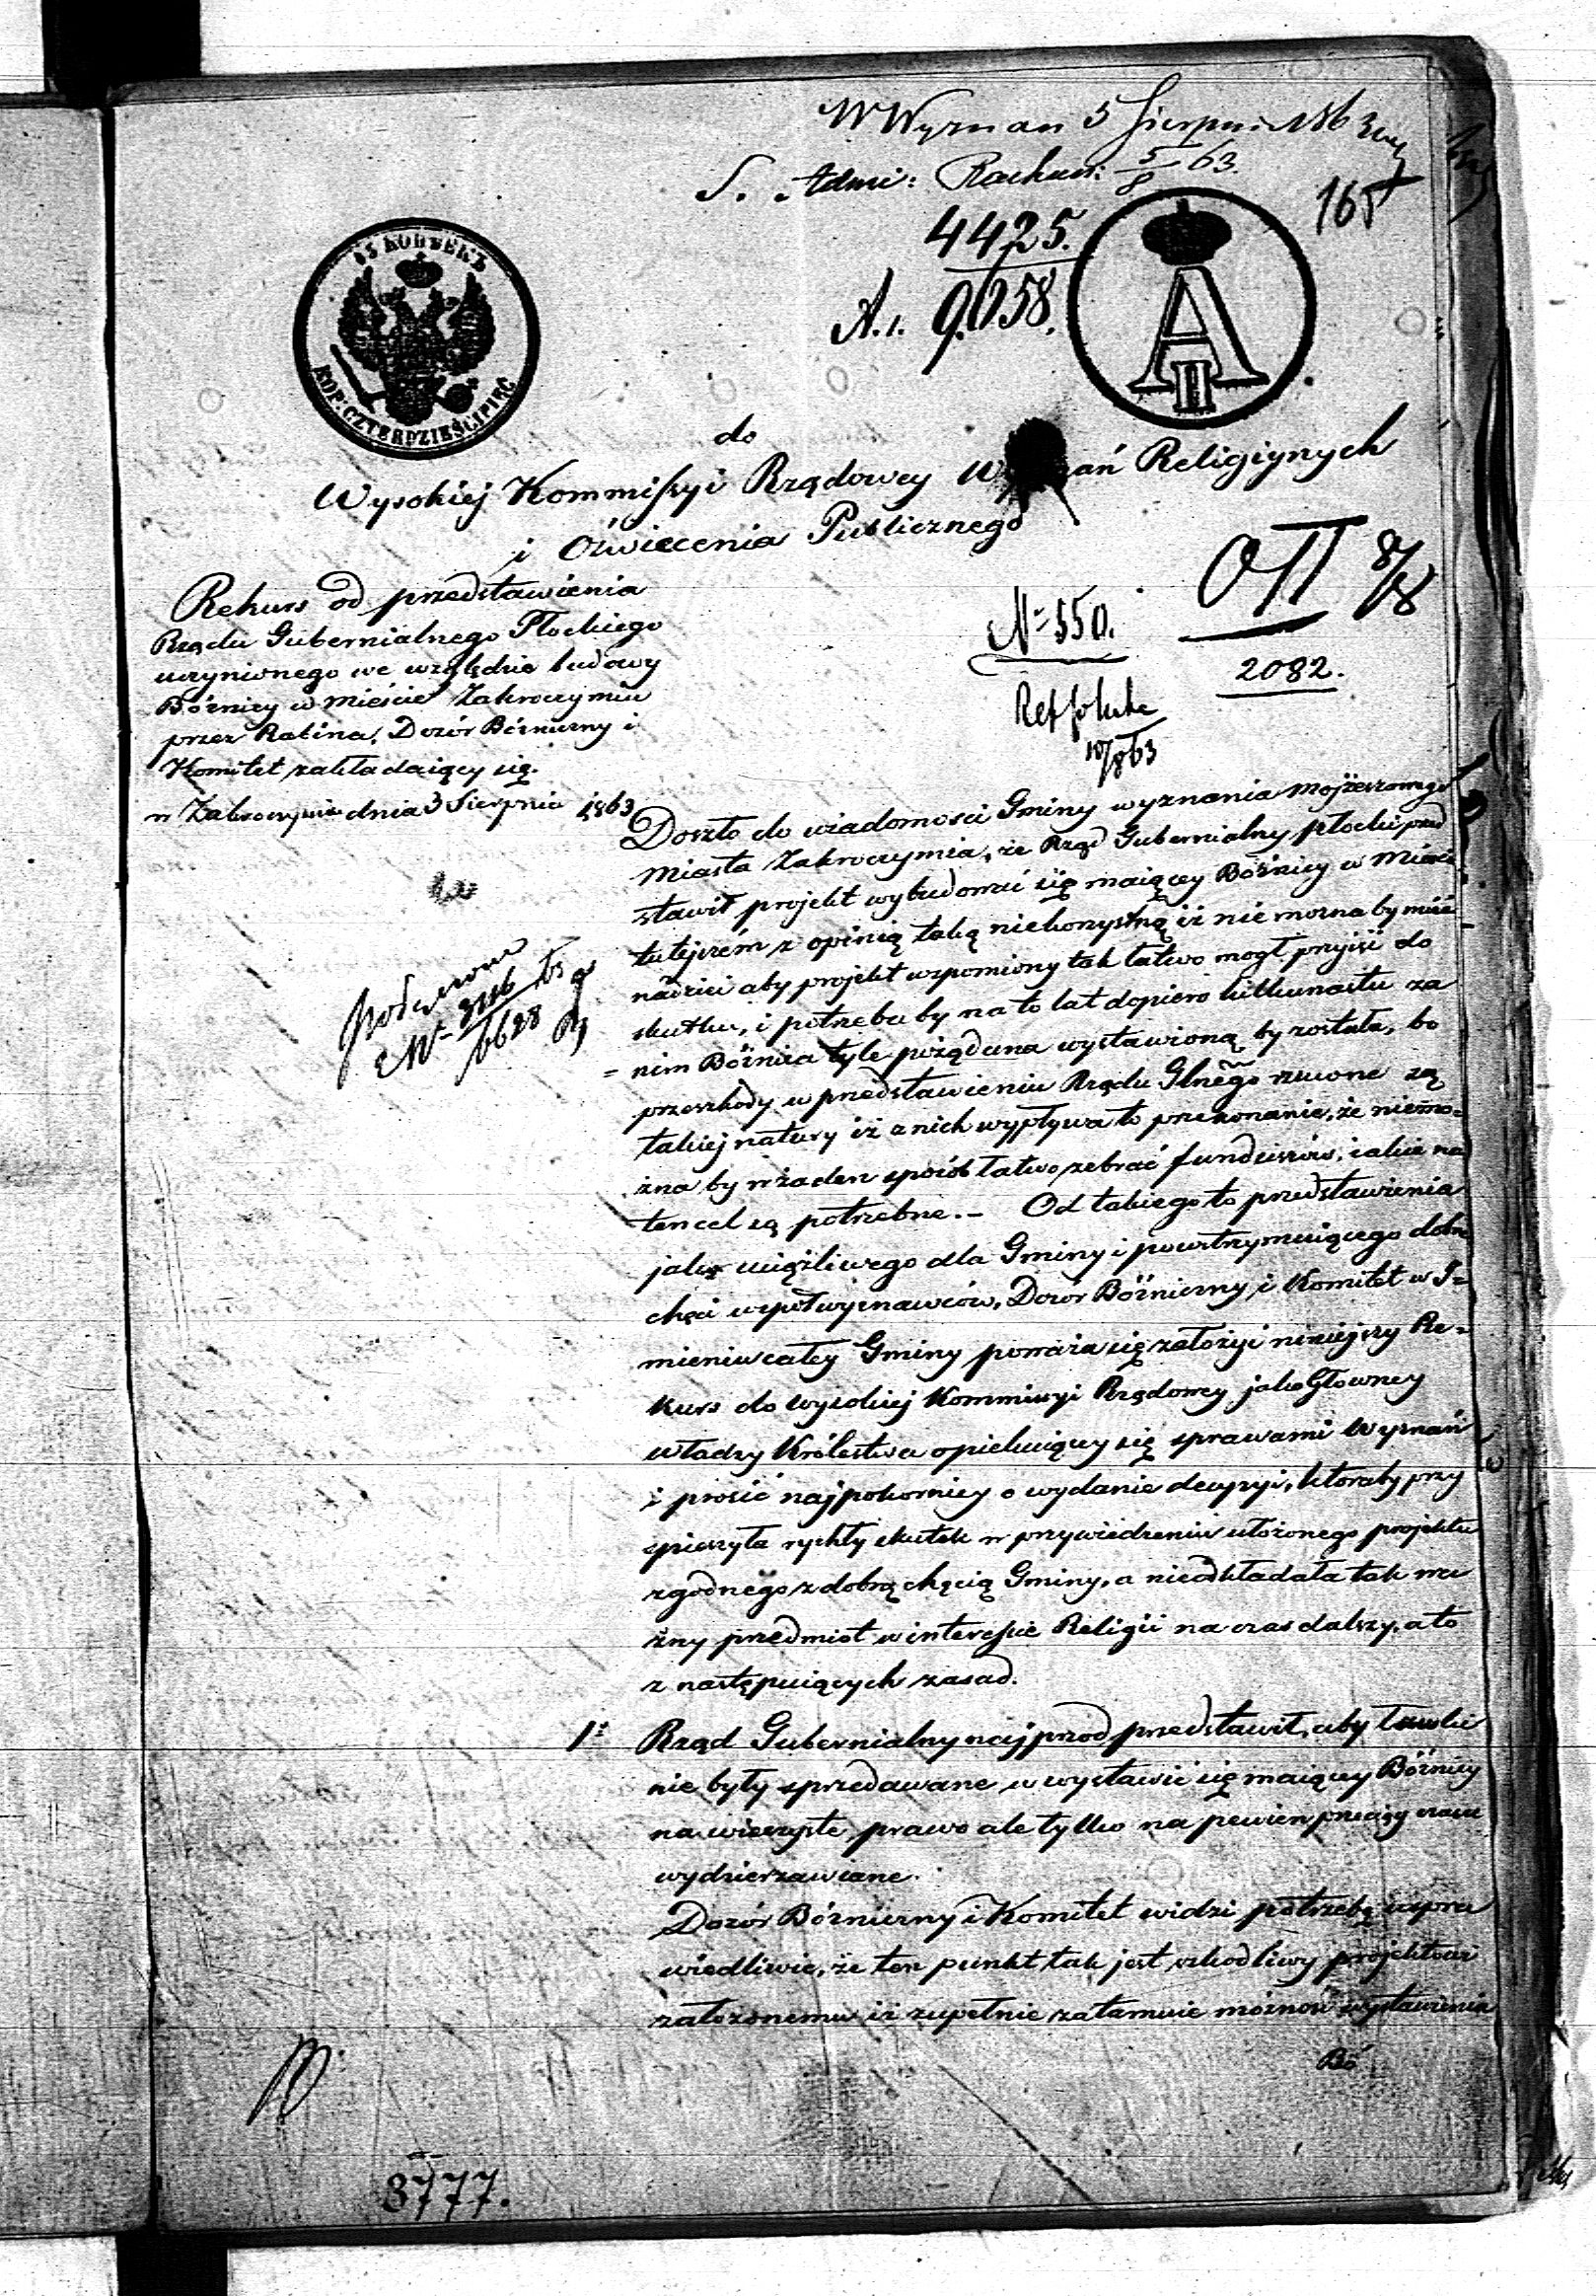 W Wyznan 5 Sierpni 1863
S. Admi: Rachun: 5/8 63.
165
4425.
A.1. 9058.
45 КОПѢЕКЪ
KOP: CZTERDZIEŚCI PIĘĆ
A II
do
Wysokiej Kommissyi Rządowey Wyznań Religiynych
i Oświecenia Publicznego
Rekurs od przedstawienia
Rządu Gubernialnego Płockiego
uczynionego we względzie budowy
Bóżnicy w mieście Zakroczymiu
przez Rabina, Dozór Bóżniczny i
Komitet zakładaiący się.
w Zakroczymiu dnia 3 Sierpnia 1863
OII 8/8
N= 550.
2082.
10/8 63
Doszło do wiadomości Gminy wyznania mojżeszowego
Miasta Zakroczymia, że Rząd Gubernialny płocki przed
stawił projekt wybudować się maiącey Bóżnicy w Mieście
tutejszém z opinią taką niekorzystną iż nie można by mieć
nadziei aby projekt wzpomniony tak łatwo mogł przyiść do
skutku, i potrzeba by na to lat dopiero kilkunastu za
= nim Bóżnica tyle pożądana wystawioną by została, bo
przeszkody w przedstawieniu Rządu Glnego rzucone są
takiej natury iż z nich wypływa to przekonanie, że niemo=
żna by w żaden sposób łatwo zebrać funduszów, iakie na
ten cel są potrzebne. – Od takiego to przedstawienia
jako uciążliwego dla Gminy i powstrzymuiącego dobre
chęci wzpółwyznawców, Dozór Bóżniczny i Komitet w I=
mieniu całey Gminy poważa się założyć niniejszy Re=
kurs do wysokiej Kommissyi Rządowey jako Głowney
władzy Królestwa opiekuiącey się sprawami Wyznań
i prosić najpokorniey o wydanie decyzyi, któraby przy
spieszyła rychły skutek w przywiedzeniu ułożonego projektu
zgodnego z dobrą chęcią Gminy, a nieodkładała tak wa
żny przedmiot w interessie Religii na czas dalszy, a to
z następuiących zasad.
1= Rząd Gubernialny najprzod przedstawił, aby ławki
nie były sprzedawane w wystawić się maiącey Bóżnicy
na wieczyste prawo ale tylko na pewien przeciąg czasu
wydzierzawiane.
Dozór Bóżniczny i Komitet widzi potrzebę uspra
wiedliwić, że ten punkt tak jest szkodliwy projektowi
założonemu iż zupełnie załamuie możność wystawienia
Bó
N= 3116
6628
3777.